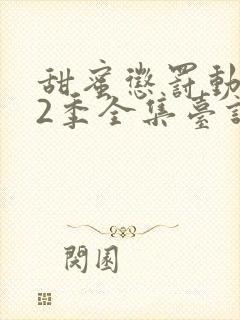 甜蜜懲罰動
2季全集臺
閱園